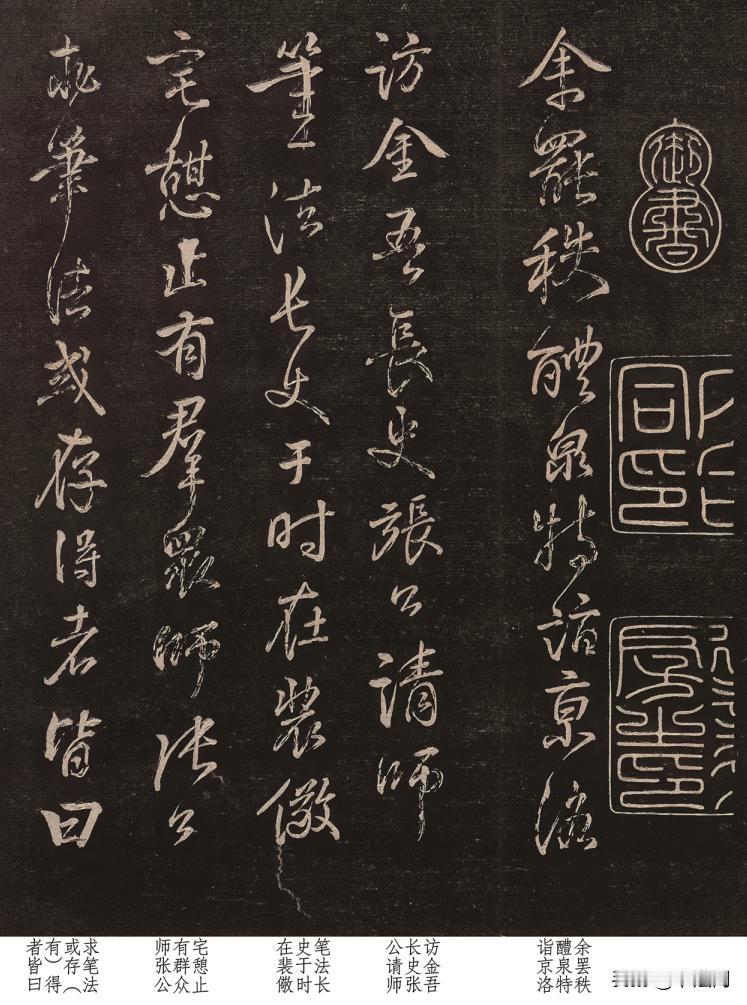 御書
余罷秩醴泉特詣京洛
訪金吾長史張公請師
筆法長史于時在裴儆
宅憩止有羣眾師張公
求筆法或存得者皆曰
余罢秩
醴泉特
诣京洛
访金吾
长史张
公请师
笔法长
史于时
在裴儆
宅憩止
有群众
师张公
求笔法
或存（
有）得
者皆曰